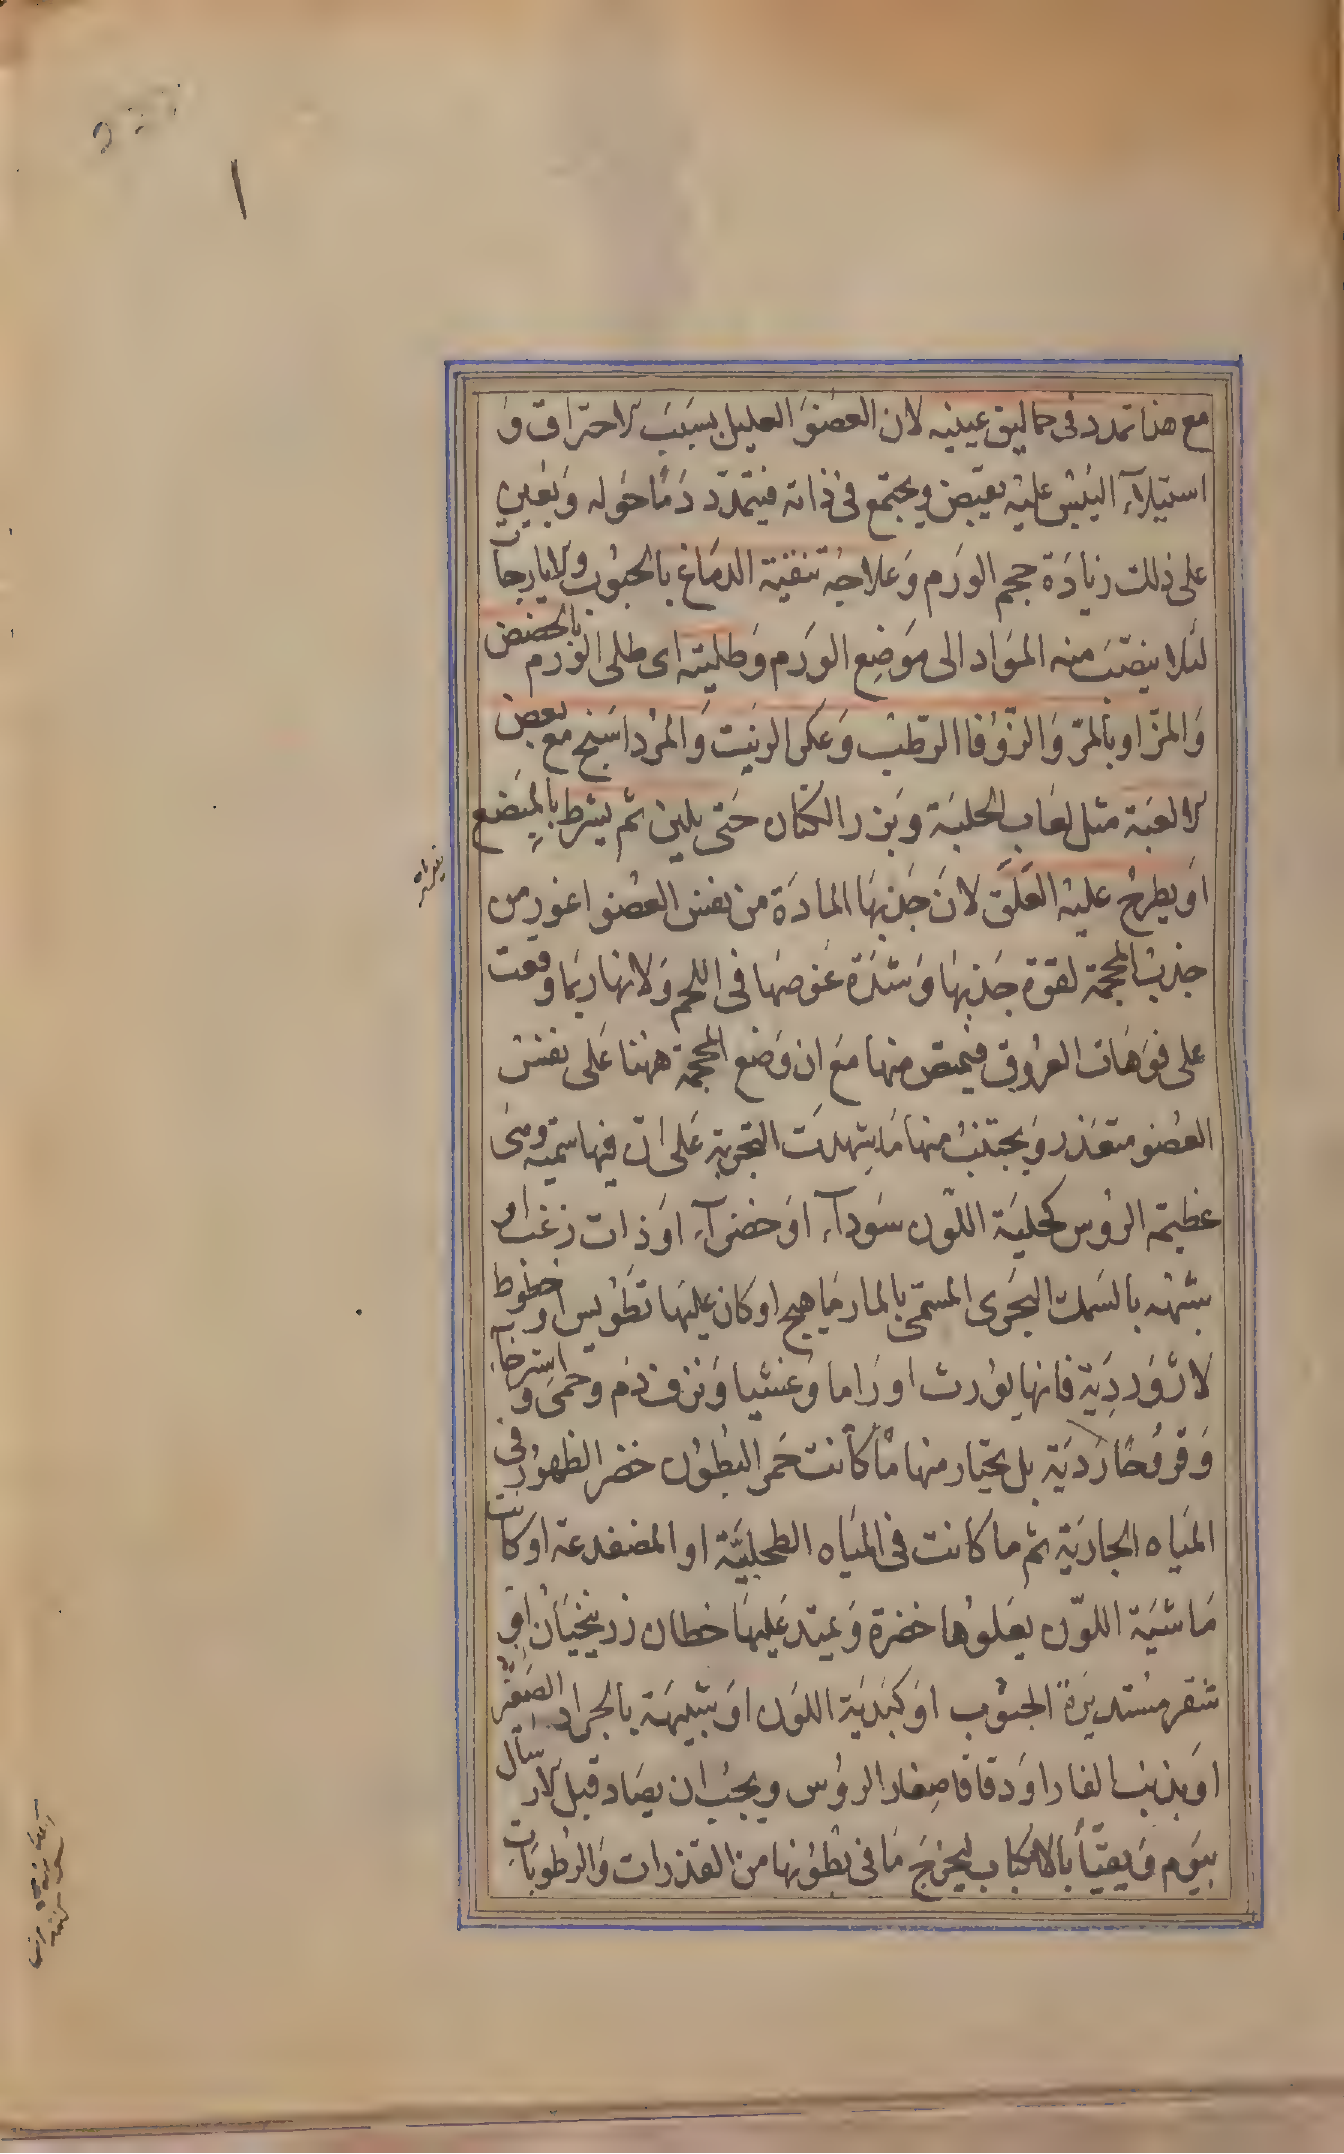 مع هذا تمدد فى حماليق عينيه لان العضو العليل بسبب الاحتراق و
استيلاء اليبس عليه يقبض ويجتمع فى ذاته فيتمدد دما حوله ويعين
على ذلك زيادة حجم الورم وعلاجه تنقية الدماغ بالحبوب والايارجات
لئلا ينصب منه المواد الى موضع الورم وطليته اى طلى الورم بالحضض
والمر او بالمر والزوفا الرطب وعكر الزيت والمرداسنج مع بعض
الالعبة مثل لعاب الحلبة وبزر الكتان حتى يلين ثم يشرط بالمبضع
او يطرح عليه العلق لان جذبها المادة من نفس العضو اغور من
جذب المحجمة لقوة جذبها وشدة غوصها فى اللحم ولانها ربما وقعت
على فوهات العروق فيمتص منها مع ان وضع المحجمة ههنا على نفس
العضو متعذر ويجتنب منها ما شهدت التجربة على ان فيها سمية وهى
عظيمة الرؤس كحلية اللون سوداء او خضراء او ذات زغب او
شبيه بالسمك البحرى المسمى بالمارماهيج او كان عليها تطويس او خطوط
لازوردية فانها يورث اوراما وغشيا ونزف دم وحمى واسترخاء
وقروحا ردية بل يختار منها ما كانت حمر البطون خضر الظهور فى
المياه الجارية ثم ما كانت فى المياه الطحلبية او المضفدعة او كانت
ماشية اللون يعلوها خضرة ويمتد عليها خطان زرنيخيان او
شقر مستديرة الجنوب او كبدية اللون او شبيهة بالجراد الصغير
او بذنب الفار او دقاقا صغار الرؤس ويجب ان يصاد قبل الارسال
بيوم ويقيأ بالاكباب ليخرج ما فى بطونها من القذرات والرطوبات